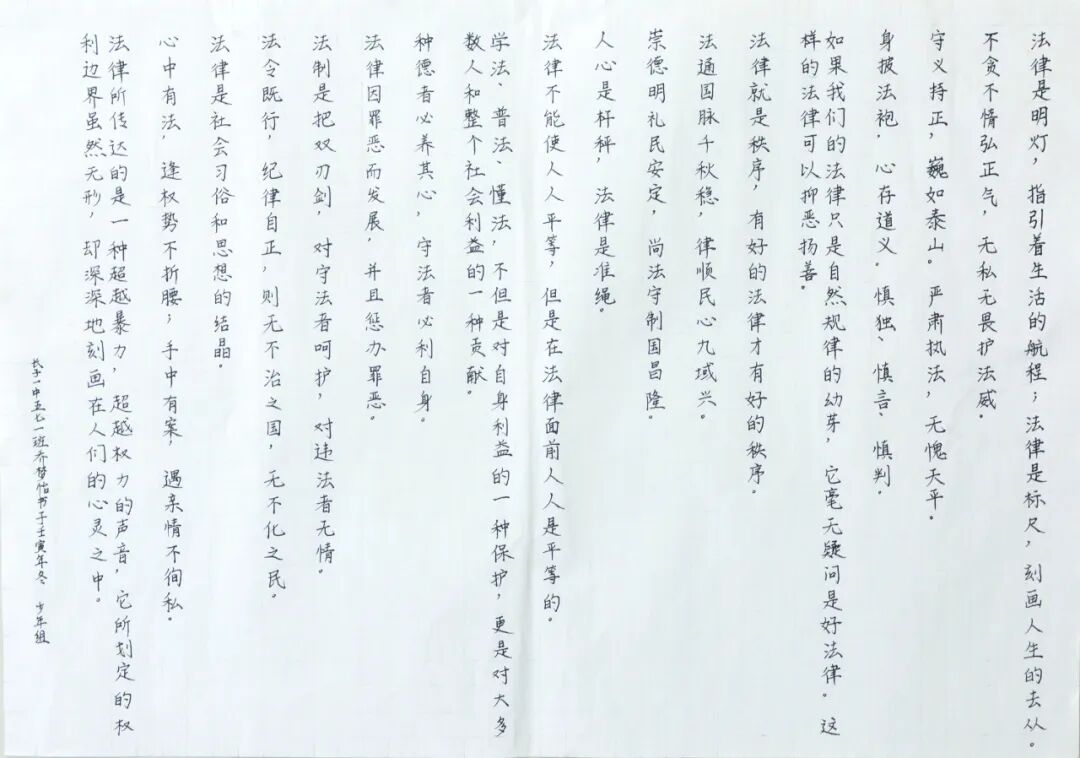 法律是明灯，指引着生活的航程；法律是标尺，刻画人生的去从。
不贪不惰弘正气，无私无畏护法威。
守义持正，巍如泰山。严肃执法，无愧天平。
身披法袍，心存道义。慎独、慎言、慎判。
如果我们的法律只是自然规律的幼芽，它毫无疑问是好法律。这
样的法律可以抑恶扬善。
法律就是秩序，有好的法律才有好的秩序。
法通国脉千秋稳，律顺民心九域兴。
崇德明礼民安定，尚法守制国昌隆。
人心是杆秤，法律是准绳。
法律不能使人人平等，但是在法律面前人人是平等的。
学法、普法、懂法，不但是对自身利益的一种保护，更是对大多
数人和整个社会利益的一种贡献。
种德者必养其心，守法者必利自身。
法律因罪恶而发展，并且惩办罪恶。
法制是把双刃剑，对守法者呵护，对违法者无情。
法令既行，纪律自正，则无不治之国，无不化之民。
法律是社会习俗和思想的结晶。
心中有法，逢权势不折腰；手中有案，遇亲情不徇私。
法律所传达的是一种超越暴力，超越权力的声音，它所划定的权
利边界虽然无形，却深深地刻画在人们的心灵之中。
长子一中五七一班齐梦怡书于壬寅年冬 少年组